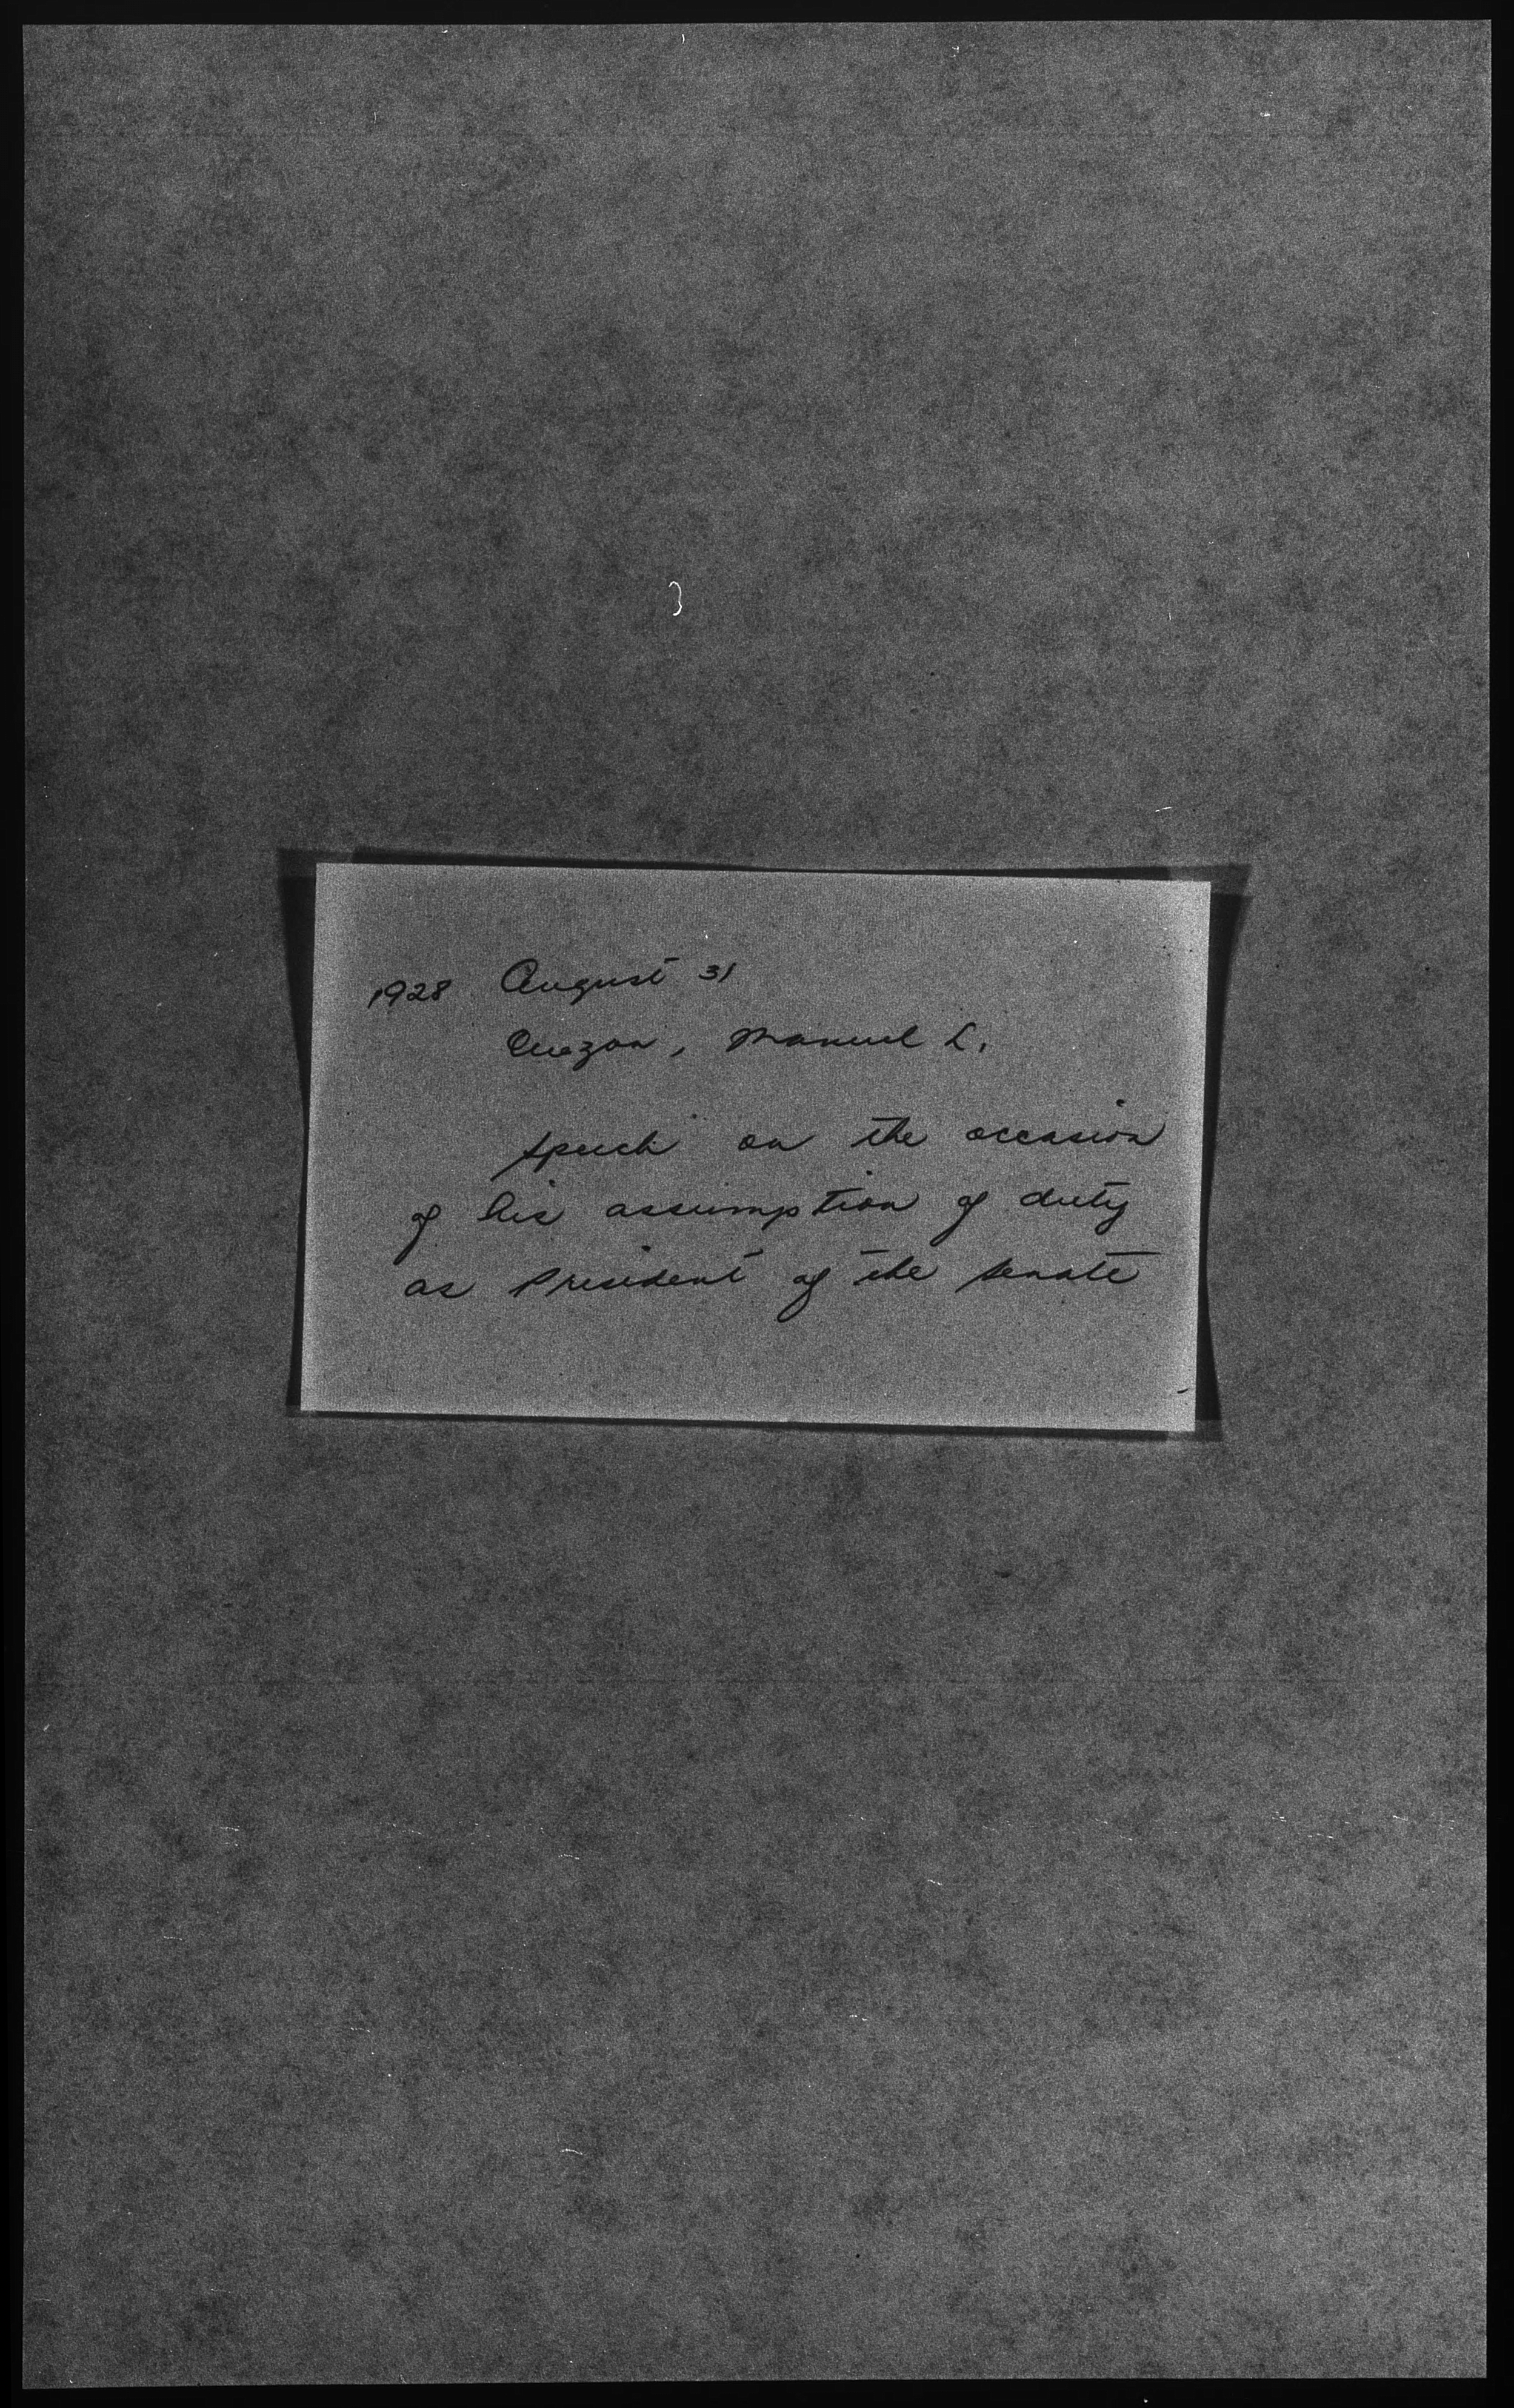 1928 August 31
Quezon, Manuel L.
Speech on the occasion
of his assumption of duty
as President of the Senate